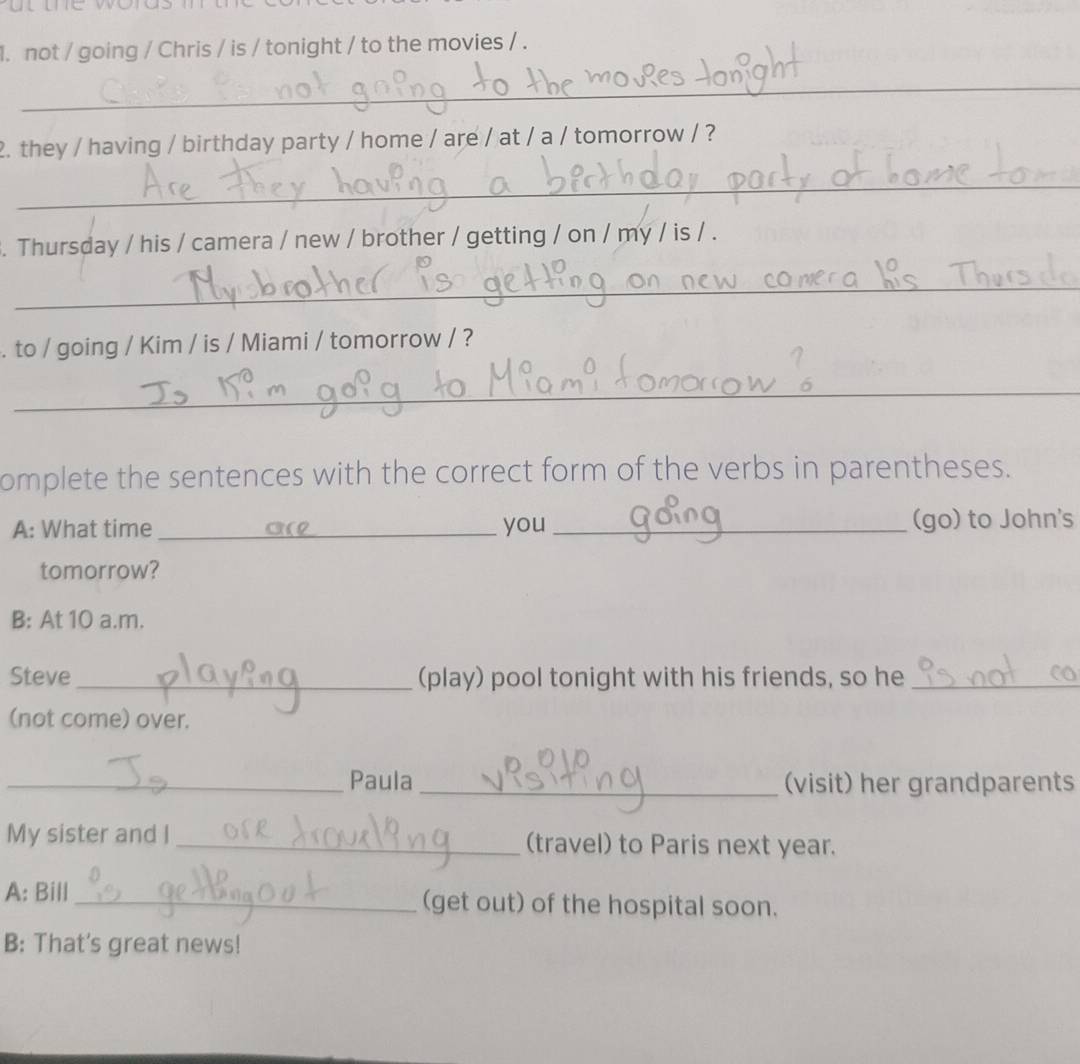 1. not / going / Chris / is / tonight / to the movies / .
not going to the movies tonight
2. they / having / birthday party / home / are / at / a / tomorrow / ?
Are they having a birthday party at home tom
. Thursday / his / camera / new / brother / getting / on / my / is / .
My brother is getting on new camera his Thursda
. to / going / Kim / is / Miami / tomorrow / ?
Is Kim goig to Miami tomorrow ?
omplete the sentences with the correct form of the verbs in parentheses.
A: What time are you going (go) to John's
tomorrow?
B: At 10 a.m.
Steve playing (play) pool tonight with his friends, so he is not co
(not come) over.
Is Paula visiting (visit) her grandparents
My sister and I are traveling (travel) to Paris next year.
A: Bill is getting out (get out) of the hospital soon.
B: That's great news!